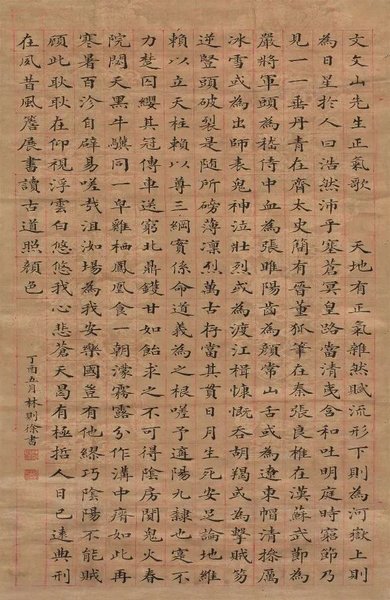 文文山先生正氣歌　天地有正氣雜然賦流形下則為河嶽上則
為日星於人曰浩然沛乎塞蒼冥皇路當清夷含和吐明庭時窮節乃
見一一垂丹青在齊太史簡在晉董狐筆在秦張良椎在漢蘇武節為
嚴將軍頭為嵇侍中血為張睢陽齒為顏常山舌或為遼東帽清操厲
冰雪或為出師表鬼神泣壯烈或為渡江楫慷慨吞胡羯或為擊賊笏
逆豎頭破裂是氣所磅礴凜烈萬古存當其貫日月生死安足論地維
賴以立天柱賴以尊三綱實係命道義為之根嗟予遘陽九隸也寔不
力楚囚纓其冠傳車送窮北鼎鑊甘如飴求之不可得陰房闃鬼火春
院閟天黑牛驥同一皁雞棲鳳凰食一朝濛霧露分作溝中瘠如此再
寒暑百沴自辟易嗟哉沮洳場為我安樂國豈有他繆巧陰陽不能賊
顧此耿耿在仰視浮雲白悠悠我心悲蒼天曷有極哲人日已遠典刑
在夙昔風簷展書讀古道照顏色
丁酉五月林則徐書